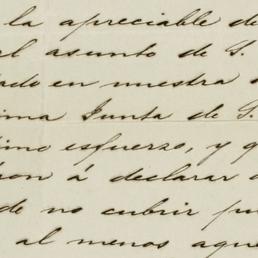 la apreciable de
el asunto de S.
ado en nuestra
ima Junta de S.
imo esfuerzo, y q
ron á declarar
de no cubrir pu
al menos aque